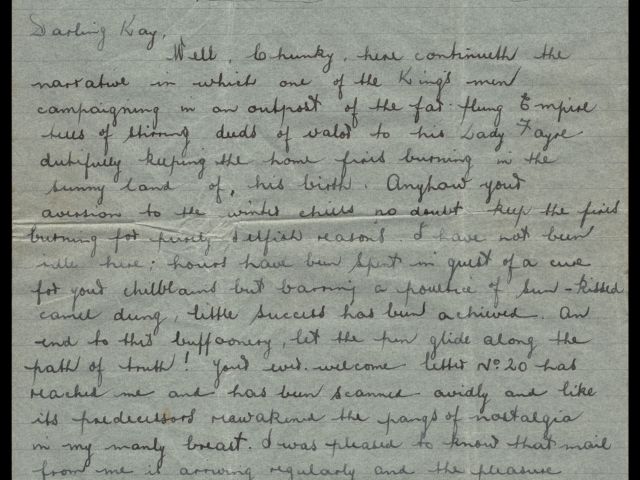 Darling Kay,
Well, Chunky, here continueth the
narrative in which one of the Kings men
campaigning in an outpost of the far-flung Empire
tells of stirring deeds of valor to his Lady Fayre
dutifully keeping the home fires burning in the
sunny land of, his birth. Anyhow your
aversion to the winter chills no doubt keep the fires
burning for purely selfish reasons. I have not been
idle here; hours have been spent in quest of a cure
for your chilblains but barring a poultice of sun-kissed
camel dung, little success has been achieved. An
end to this buffoonery, let the pen glide along the
path of truth! Your ever-welcome letter No 20 has
reached me and has been scanned avidly and like
its predecessors reawakened the pangs of nostalgia
in my manly breast. I was pleased to know that mail
from me is arriving regularly and the pleasure